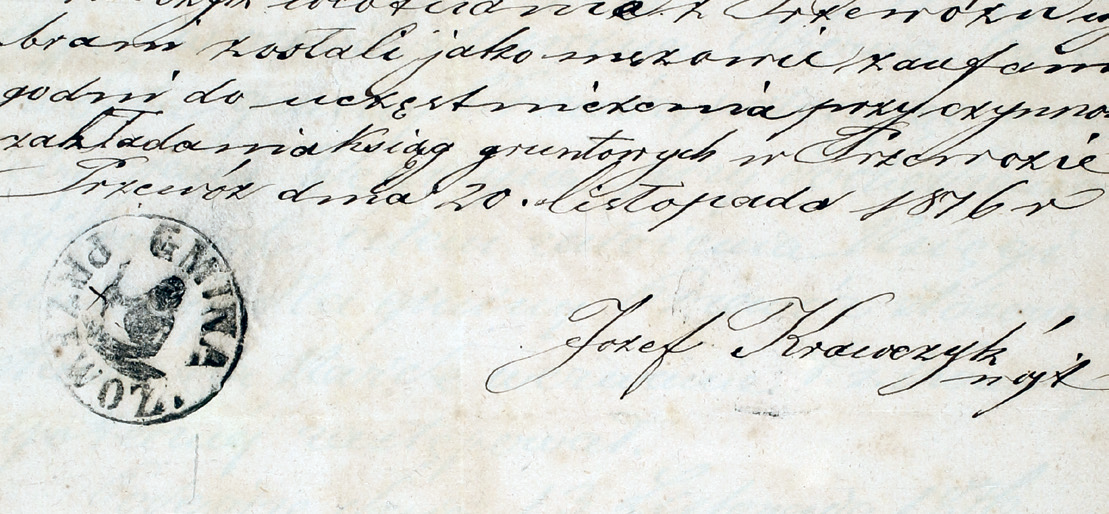 z Przewozu wy
brani zostali jako mężowie zaufani
godni do uczęstniczenia przy czynno
zakładania ksiąg gruntowych w Przewozie
Przewóz dnia 20. listopada 1876 r
GMINA PRZEWOZ.
Józef Krawczyk
wójt